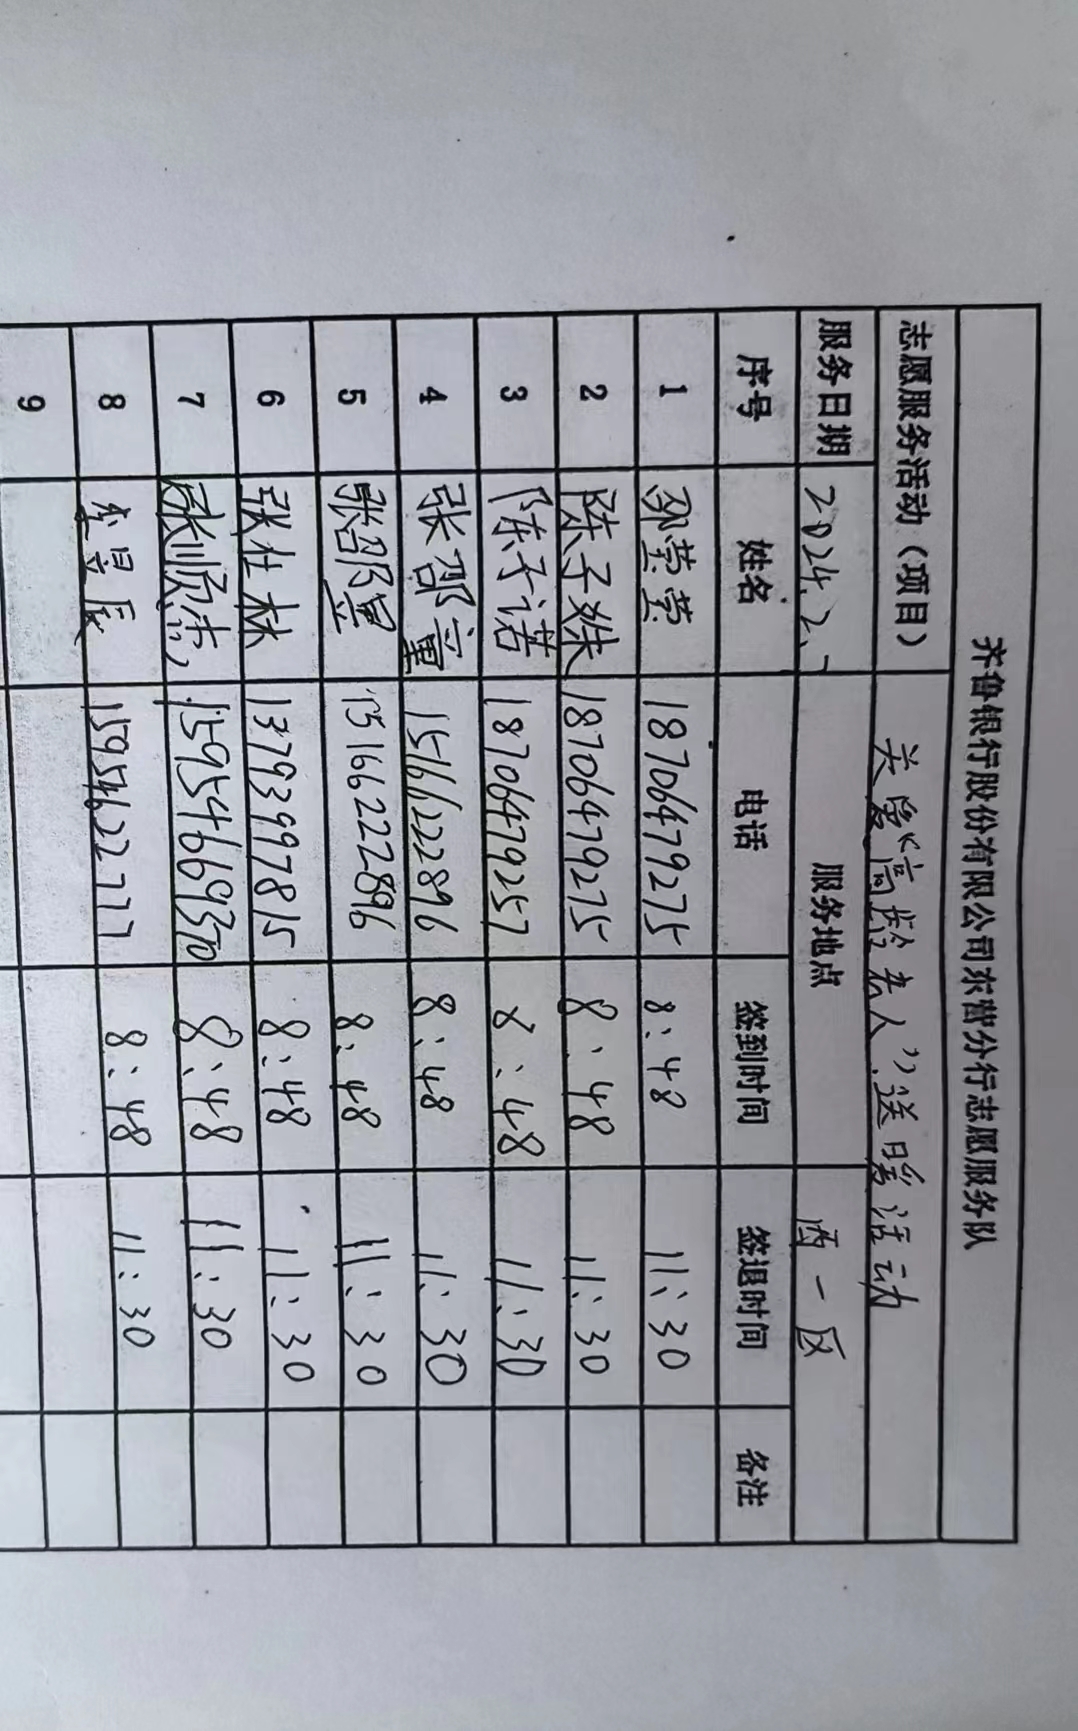 齐鲁银行股份有限公司东营分行志愿服务队
志愿服务活动（项目） 关爱“高龄老人”送暖活动
服务日期 2024.2.7 服务地点 西一区
序号 姓名 电话 签到时间 签退时间 备注
1 孙莹莹 18706479275 8:48 11:30
2 陈子姝 18706479275 8:48 11:30
3 陈子诺 18706479257 8:48 11:30
4 张郡 15166222896 8:48 11:30
5 张 15166227896 8:48 11:30
6 张杜林 13793997815 8:48 11:30
7 张顺杰 15954669370 8:48 11:30
8 李昱辰 15954622777 8:48 11:30
9